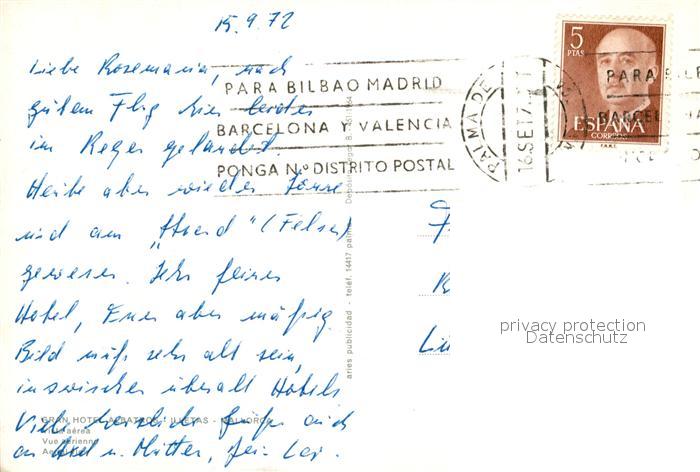 15.9.72
Liebe Rosemaria, nach
gutem Flug hier leider
im Regen gelandet.
Heute aber wieder Sonne
und am "Strand" (Felsen)
gewesen. Sehr feines
Hotel, Essen aber mäßig.
Bild muß sehr alt sein,
inzwischen überall Hotels
Viele herzliche Grüße auch
an Axel u. Mutter,
PARA BILBAO MADRID
BARCELONA Y VALENCIA
PONGA N.º DISTRITO POSTAL
PALMA DE
16 SET 7
5
PTAS
ESPAÑA
CORREOS
PARA BILB
BARCEL
GRAN HOTEL ALBATROS - ILLETAS - MALLORCA
Vista aérea
Vue aérienne
aries publicidad - teléf. 14417 palma
privacy protection
Datenschutz